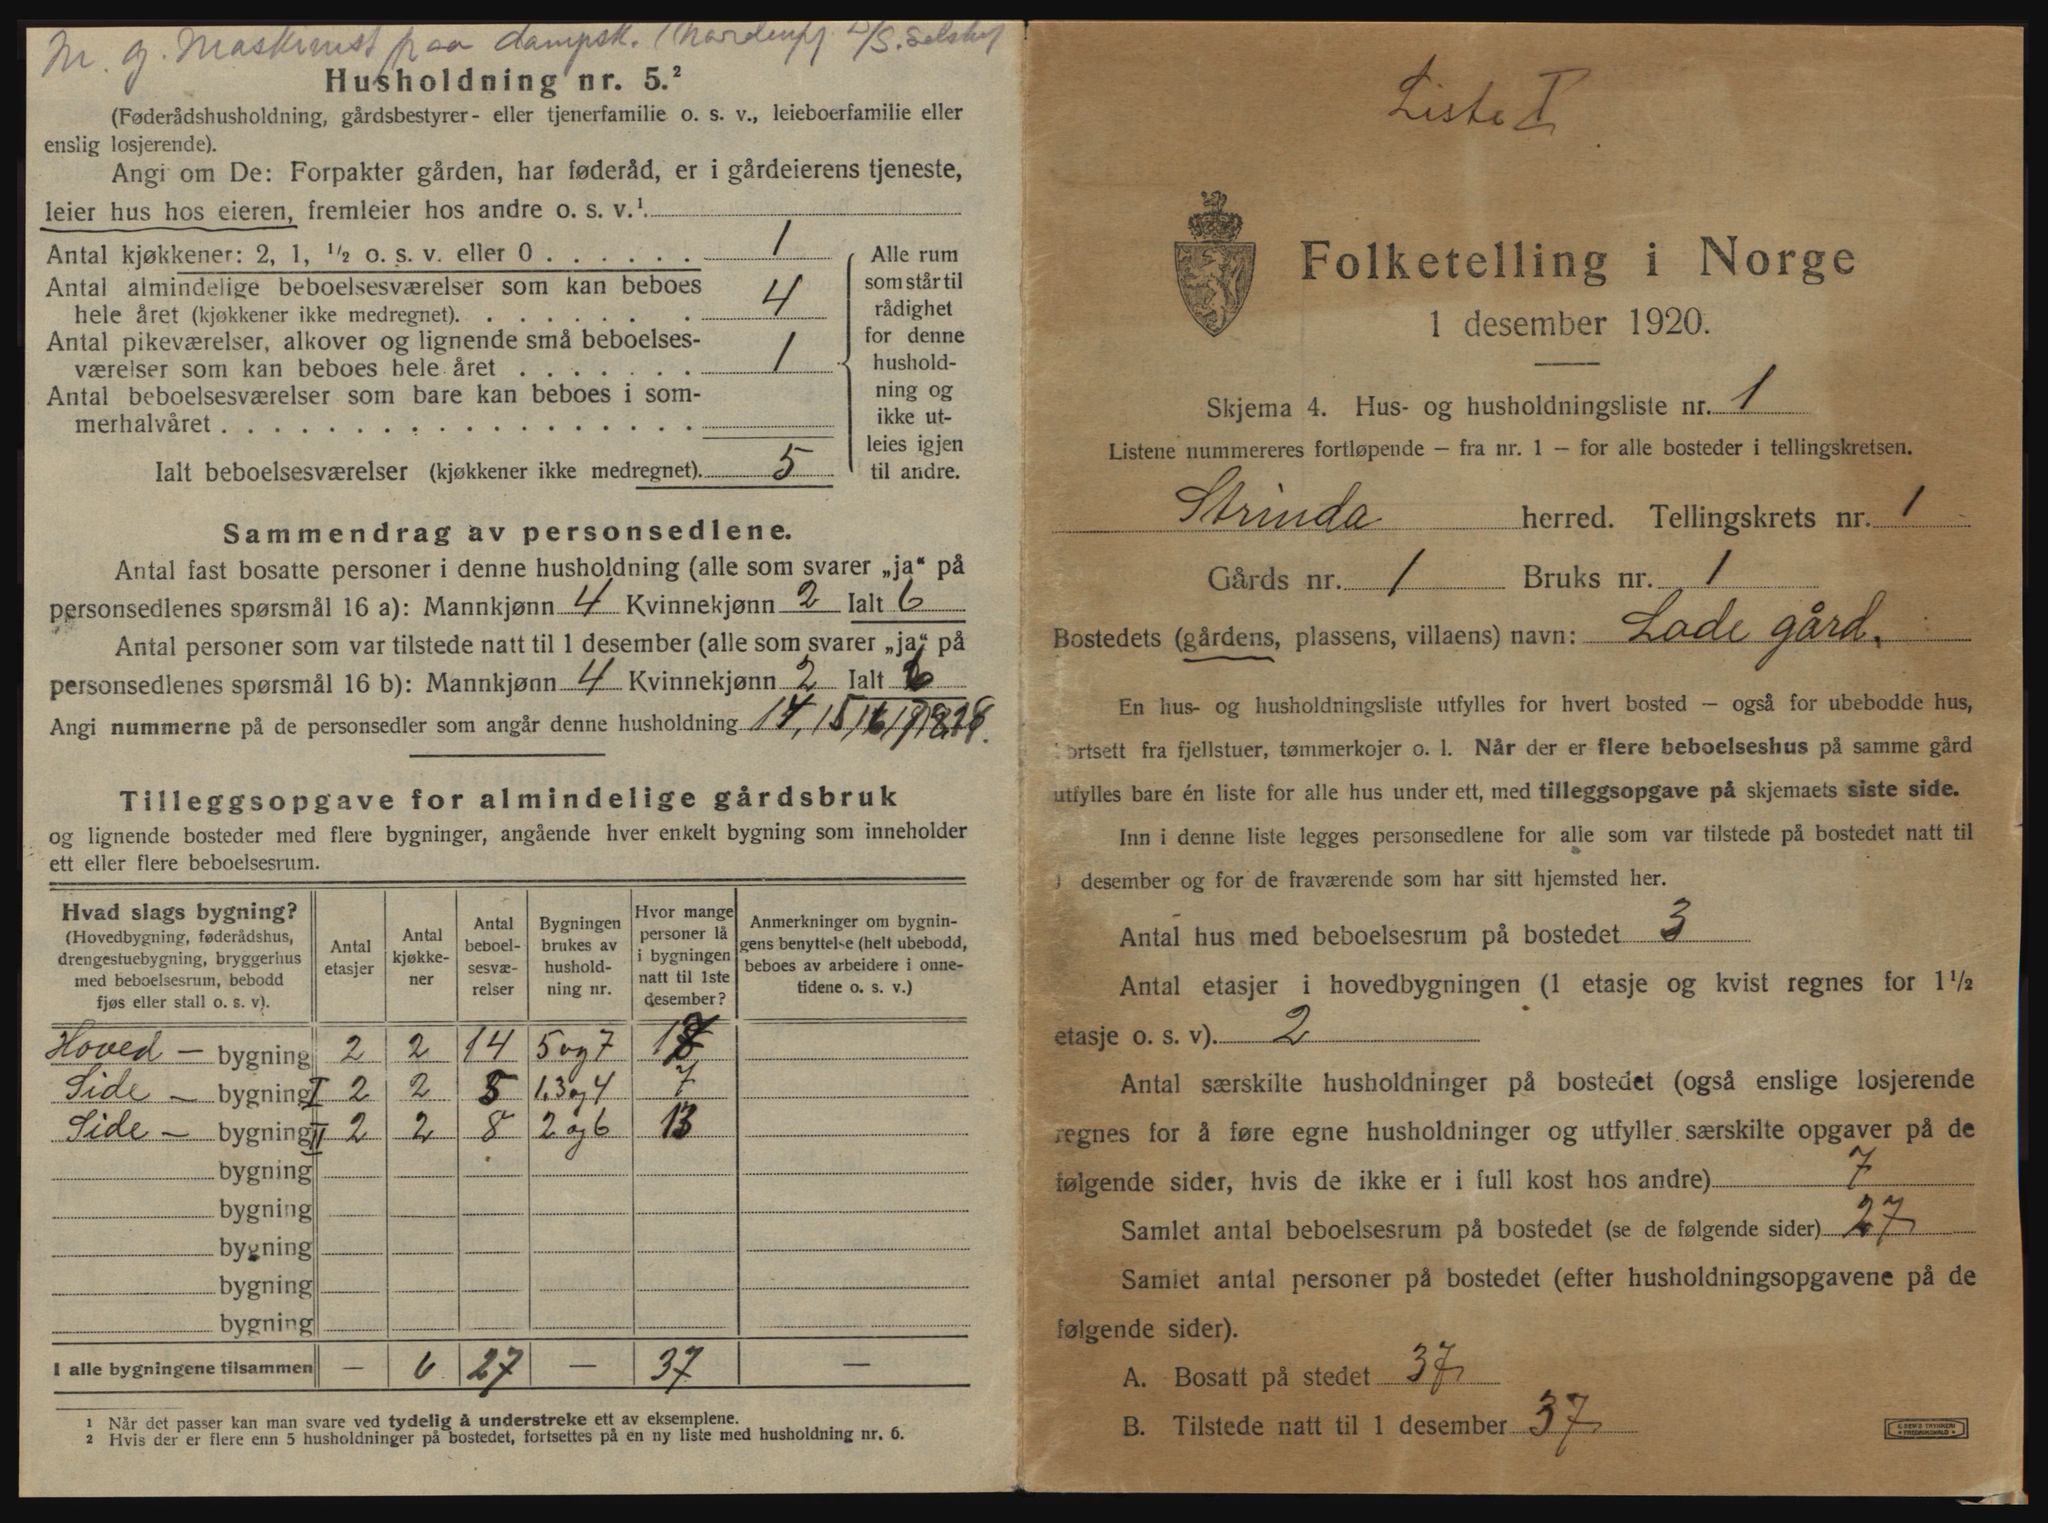 M. g. Maskinist paa dampsk. D/S.
Husholdning nr. 5.²
(Føderådshusholdning, gårdsbestyrer- eller tjenerfamilie o. s. v., leieboerfamilie eller
enslig losjerende).
Angi om De: Forpakter gården, har føderåd, er i gårdeierens tjeneste,
leier hus hos eieren, fremleier hos andre o. s. v.¹
Antal kjøkkener: 2, 1, ½ o. s. v. eller 0 . . . . . . 1
Antal almindelige beboelsesværelser som kan beboes
hele året (kjøkkener ikke medregnet). . . . . . . . 4
Antal pikeværelser, alkover og lignende små beboelses-
værelser som kan beboes hele året . . . . . . . 1
Antal beboelsesværelser som bare kan beboes i som-
merhalvåret . . . . . . . . . . . . . . . . . .
Ialt beboelsesværelser (kjøkkener ikke medregnet). 5
Alle rum
som står til
rådighet
for denne
hushold-
ning og
ikke ut-
leies igjen
til andre.
Sammendrag av personsedlene.
Antal fast bosatte personer i denne husholdning (alle som svarer „ja“ på
personsedlenes spørsmål 16 a): Mannkjønn 4 Kvinnekjønn 2 Ialt 6
Antal personer som var tilstede natt til 1 desember (alle som svarer „ja“ på
personsedlenes spørsmål 16 b): Mannkjønn 4 Kvinnekjønn 2 Ialt 6
Angi nummerne på de personsedler som angår denne husholdning 14, 15, 16, 17, 18,
Tilleggsopgave for almindelige gårdsbruk
og lignende bosteder med flere bygninger, angående hver enkelt bygning som inneholder
ett eller flere beboelsesrum.
Hvad slags bygning?
(Hovedbygning, føderådshus,
drengestuebygning, bryggerhus
med beboelsesrum, bebodd
fjøs eller stall o. s. v).
Antal
etasjer
Antal
kjøkke-
ner
Antal
beboel-
sesvæ-
relser
Bygningen
brukes av
hushold-
ning nr.
Hvor mange
personer lå
i bygningen
natt til 1ste
desember?
Anmerkninger om bygnin-
gens benyttelse (helt ubebodd,
beboes av arbeidere i onne-
tidene o. s. v.)
Hoved - bygning 2 2 14 5 og 7
Side - bygning I 2 2 5 1.3 og 4 7
Side - bygning II 2 2 8 2 og 6 13
bygning
bygning
bygning
bygning
bygning
I alle bygningene tilsammen — 6 27 — 37 —
¹ Når det passer kan man svare ved tydelig å understreke ett av eksemplene.
² Hvis der er flere enn 5 husholdninger på bostedet, fortsettes på en ny liste med husholdning nr. 6.
Liste I
Folketelling i Norge
1 desember 1920.
Skjema 4. Hus- og husholdningsliste nr. 1
Listene nummereres fortløpende – fra nr. 1 – for alle bosteder i tellingskretsen.
Strinda herred. Tellingskrets nr. 1
Gårds nr. 1 Bruks nr. 1
Bostedets (gårdens, plassens, villaens) navn: Lade gård.
En hus- og husholdningsliste utfylles for hvert bosted – også for ubebodde hus,
bortsett fra fjellstuer, tømmerkojer o. l. Når der er flere beboelseshus på samme gård
utfylles bare én liste for alle hus under ett, med tilleggsopgave på skjemaets siste side.
Inn i denne liste legges personsedlene for alle som var tilstede på bostedet natt til
1 desember og for de fraværende som har sitt hjemsted her.
Antal hus med beboelsesrum på bostedet 3
Antal etasjer i hovedbygningen (1 etasje og kvist regnes for 1½
etasje o. s. v). 2
Antal særskilte husholdninger på bostedet (også enslige losjerende
regnes for å føre egne husholdninger og utfyller særskilte opgaver på de
følgende sider, hvis de ikke er i full kost hos andre) 7
Samlet antal beboelsesrum på bostedet (se de følgende sider) 27
Samlet antal personer på bostedet (efter husholdningsopgavene på de
følgende sider).
A. Bosatt på stedet 37
B. Tilstede natt til 1 desember 37
TRYKKERI
FREDRIKSHALD